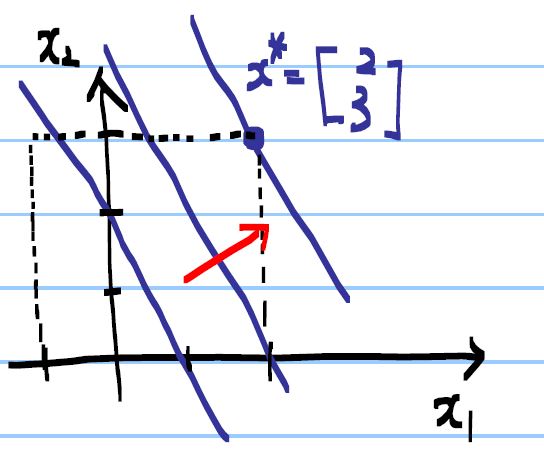 x₂
x* = [2
3]
x₁